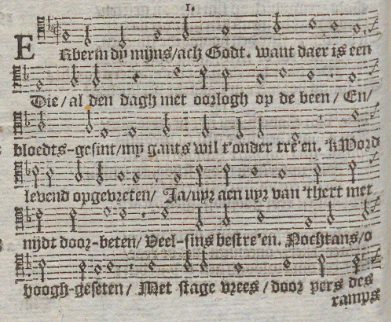 1.
Erbermdy mijns/ach Godt. want daer is een
Die/al den dagh met oorlogh op de been/En/
bloedts-gesint/my gants wil t'onder tre'en. 'kWord
levend opgevreten/ Ja/uyr aen uyr van 'thert met
nijdt door-beten/Veel-sins bestre'en. Nochtans/o
hoogh-geseten/ Met stage vrees/door pers des
ramps